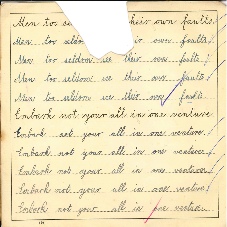 Men to se heir own faults.
Men to seldom ir own faults
Men to seldom see their own faults
Men to seldom see their own faults
Men to seldom see their own faults
Embark not your all in one venture
Embark not your all in one venture.
Embark not your all in one venture.
Embark not your all in one venture.
Embark not your all in one venture.
Embark not your all in one venture.